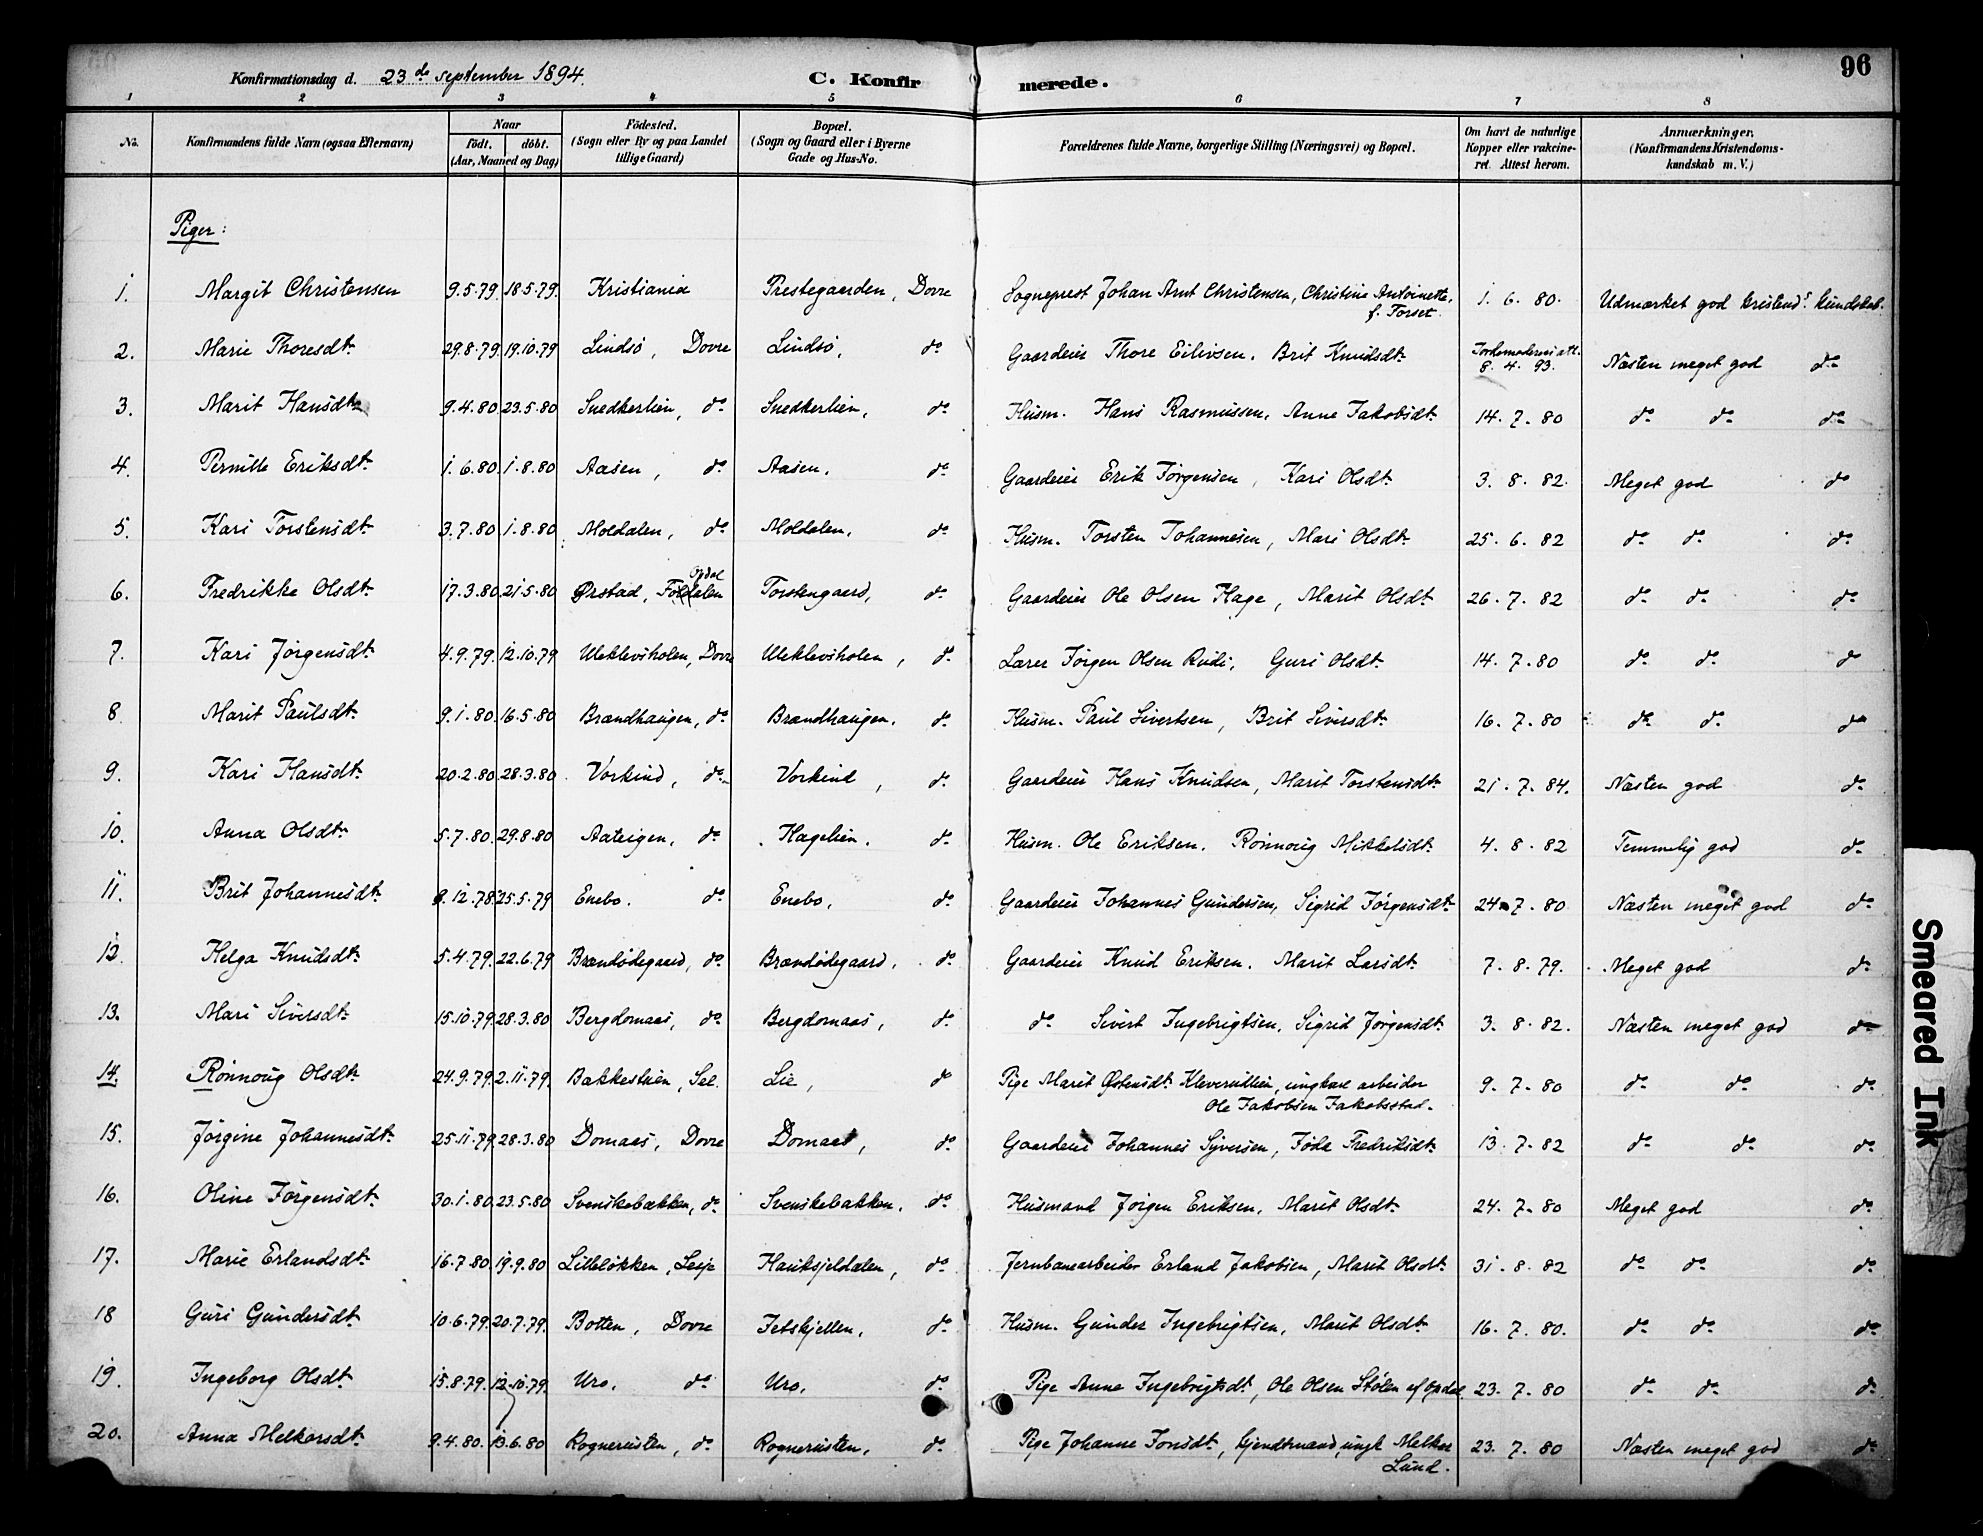 96
Konfirmationsdag d. 23de september 1894. C. Konfirmerede.
1 2 3 4 5 6 7 8
No. Konfirmandens fulde Navn (ogsaa Efternavn) Naar födt. döbt. (Aar, Maaned og Dag) Födested. (Sogn eller By og paa Landet tillige Gaard) Bopæl. (Sogn og Gaard eller i Byerne Gade og Hus-No. Forældrenes fulde Navne, borgerlige Stilling (Næringsvei) og Bopæl. Om havt de naturlige Kopper eller vakcineret. Attest herom. Anmærkninger. (Konfirmandens Kristendomskundskab m. V.)
Piger:
1. Margit Christensen 9.5.79 18.5.79. Kristiania Prestegaarden, Dovre Sogneprest Johan Arnt Christensen, Christine Antoinette, f. Forset. 1. 6. 80. Udmærket god kristends. kundskab.
2. Marie Thoresdt. 29.8.79. 19.10.79 Lindsö, Dovre Lindsö, do Gaardeier Thore Eilivsen. Brit Knudsdt. Jordemoderens att. 8. 4. 93. Næsten meget god do
3. Marit Hansdt. 9.4.80 23.5.80 Snedkerlien, do Snedkerlien, do Husm. Hans Rasmussen, Anne Jakobsdt. 14. 7. 80 do do do
4. Pernille Eriksdt. 1.6.80 1.8.80 Aasen, do Aasen, do Gaardeier Erik Jörgensen, Kari Olsdt. 3. 8. 82. Meget god do
5. Kari Torstensdt. 3.7.80 1.8.80 Moldalen, do Moldalen, do Husm. Torsten Johannesen, Mari Olsdt. 25. 6. 82 do do do
6. Fredrikke Olsdt. 17.3.80 21.5.80 Ørstad, Foldalen Opdal Torstengaard, do Gaardeier Ole Olsen Hage, Marit Olsdt. 26. 7. 82 do do do
7. Kari Jörgensdt. 4.9.79. 12.10.79 Uleklevsholen, Dovre Uleklevsholen, do Lærer Jörgen Olsen Rudi, Guri Olsdt. 14. 7. 80 do do do
8. Marit Paulsdt. 9.1.80 16.5.80 Brændhaugen, do Brændhaugen, do Husm. Paul Sivertsen, Brit Siversdt. 16. 7. 80 do do do
9. Kari Hansdt. 20.2.80 28.3.80 Vorkind, do Vorkind, do Gaardeier Hans Knudsen, Marit Torstensdt. 21. 7. 84. Næsten god do
10. Anna Olsdt. 5.7.80. 29.8.80 Aateigen, do Hagelien, do Husm. Ole Eriksen, Rönnoug Mikkelsdt. 4. 8. 82 Temmelig god do
11. Brit Johannesdt. 8.12.78. 25.5.79 Enebo, do Enebo, do Gaardeier Johannes Gundersen, Sigrid Jörgensdt. 24. 7. 80 Næsten meget god do
12. Helga Knudsdt. 5.4.79. 22.6.79 Brændödegaard, do Brændödegaard, do Gaardeier Knud Eriksen. Marit Larsdt. 7. 8. 79. Meget god do
13. Mari Siversdt. 15.10.79. 28.3.80 Bergdomaas, do Bergdomaas, do do Sivert Ingebrigtsen, Sigrid Jörgensdt. 3. 8. 82. Næsten meget god do
14. Rönnoug Olsdt. 24.9.79. 2.11.79. Bakkestuen, Sel. Lie, do Pige Marit Østensdt. Kleverudlien, ungkarl arbeider Ole Jakobsen Jakobsstad. 9. 7. 80 do do do
15. Jörgine Johannesdt. 25.11.79. 28.3.80 Domaas, Dovre Domaas, do Gaardeier Johannes Syversen, Föda Fredriksdt. 13. 7. 82 do do do
16. Oline Jörgensdt. 30.1.80. 23.5.80 Svenskebækken, do Svenskebækken, do Husmand Jörgen Eriksen, Marit Olsdt. 24. 7. 80 Meget god do
17. Marie Erlandsdt. 16.7.80. 19.9.80 Lillelökken, Lesje Haukskjeldalen, do Jernbanearbeider Erland Jakobsen, Marit Olsdt. 31. 8. 82 do do do
18 Guri Gundersdt. 10.6.79. 20.7.79. Botten, Dovre Jetskjellen, do Husm. Gunder Ingebrigtsen, Marit Olsdt. 16. 7. 80. do do do
19. Ingeborg Olsdt. 15.8.79. 12.10.79. Uro, do Uro, do Pige Anne Ingebrigtsdt., Ole Olsen Stölen af Opdal 23. 7. 80 do do do
20. Anna Melkorsdt. 9.4.80. 13.6.80 Rognerusten, do Rognerusten, do Pige Johanne Jonsdt., gjendtmand, ungk. Melkor Lund. 23. 7. 80 Næsten meget god do
Smeared Ink